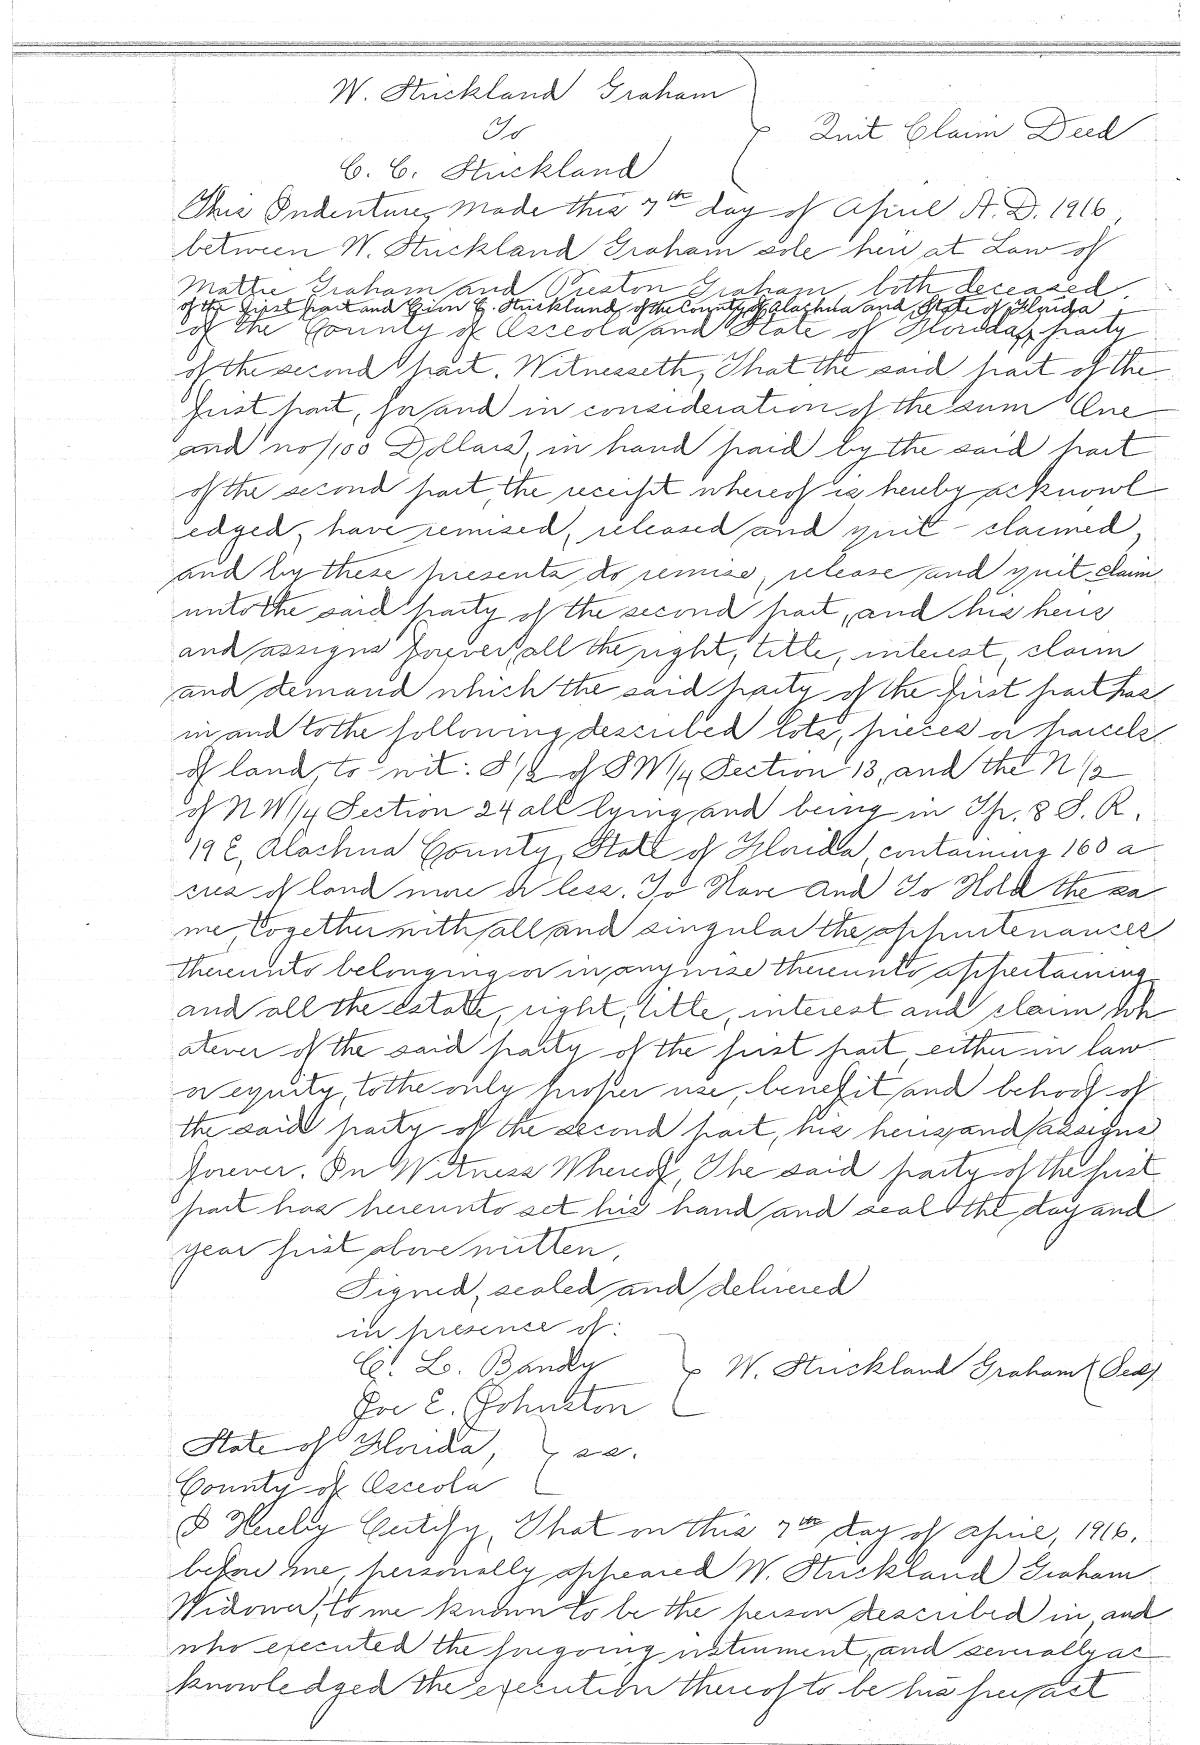 W. Strickland Graham
To
Quit Claim Deed
C. C. Strickland
This Indenture, Made this 7th day of April A. D. 1916,
between W. Strickland Graham sole heir at Law of
Mattie Graham and Preston Graham, both deceased,
of the first part and C. Strickland, of the County of Alachua and State of Florida
of the County of Osceola and State of Florida, party
of the second part. Witnesseth, That the said part of the
first part, for and in consideration of the sum One
and no/100 Dollars, in hand paid by the said part
of the second part, the receipt whereof is hereby acknowl
edged, have remised, released and quit-claimed,
and by these presents do remise, release and quit claim
unto the said party of the second part, and his heirs
and assigns forever, all the right, title, interest, claim
and demand which the said party of the first part has
in and to the following described lots, pieces or parcels
of land, to-wit: S 1/2 of SW 1/4 Section 13, and the N 1/2
of NW 1/4 Section 24 all lying and being in Tp. 8 S. R.
19 E, Alachua County, State of Florida, containing 160 a
cres of land more or less. To Have And To Hold the sa
me, together with all and singular the appurtenances
thereunto belonging or in anywise thereunto appertaining
and all the estate, right, title, interest and claim wh
atever of the said party of the first part, either in law
or equity, to the only proper use, benefit and behoof of
the said party of the second part, his heirs and assigns
forever. In Witness Whereof, The said party of the first
part has hereunto set his hand and seal the day and
year first above written.
Signed, sealed and delivered
in presence of:
C. L. Bandy
W. Strickland Graham (Seal)
Joe E. Johnston
State of Florida, ss.
County of Osceola
I Hereby Certify, That on this 7th day of April, 1916,
before me, personally appeared W. Strickland Graham
Widower, to me known to be the person described in, and
who executed the foregoing instrument, and severally ac
knowledged the execution thereof to be his free act